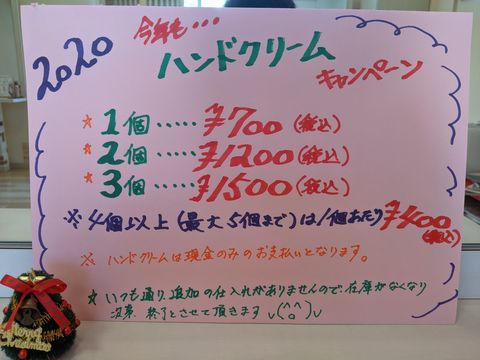 2020
今年も・・・
ハンドクリーム
キャンペーン
★1個‥‥‥¥700(税込)
★2個‥‥‥¥1200(税込)
★3個‥‥‥¥1500(税込)
※4個以上(最大5個まで)は1個あたり¥400(税込)
※ ハンドクリームは現金のみのお支払いとなります。
★ いつも通り、追加の仕入れがありませんので、在庫がなくなり
次第、終了とさせて頂きます∪(^o^)∪
Merry
Christmas